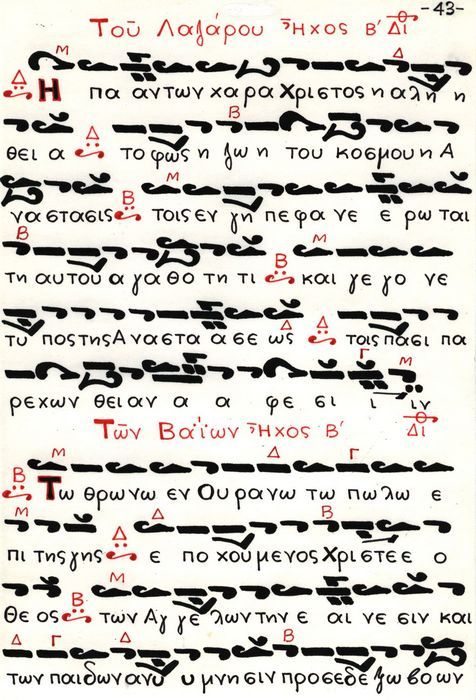 -43-
Τοῦ Λαζάρου Ἦχος Β΄ Δι
Η πα αντωνχαραΧριστοςηαλη η
θει α τοφωςηζωη τουκοσμουηΑ
ναστασις τοιςεν γη πεφανε ε ρωται
τηαυτουαγαθοτητι καιγεγονε
τυ ποςτηςΑναστα ασεως τοιςπασιπα
ρεχων θειαν α α φεσι ι ιν
Τῶν Βαΐων Ἦχος Β΄ Δι
Τω θρονω εν Ουρανω τω πωλω ε
πι τηςγης ε ποχουμενος Χριστεεο
θεος τωνΑγγελωντην ε αι νεσιν και
των παιδωνανυ υμνησινπροσεδεζωβοων